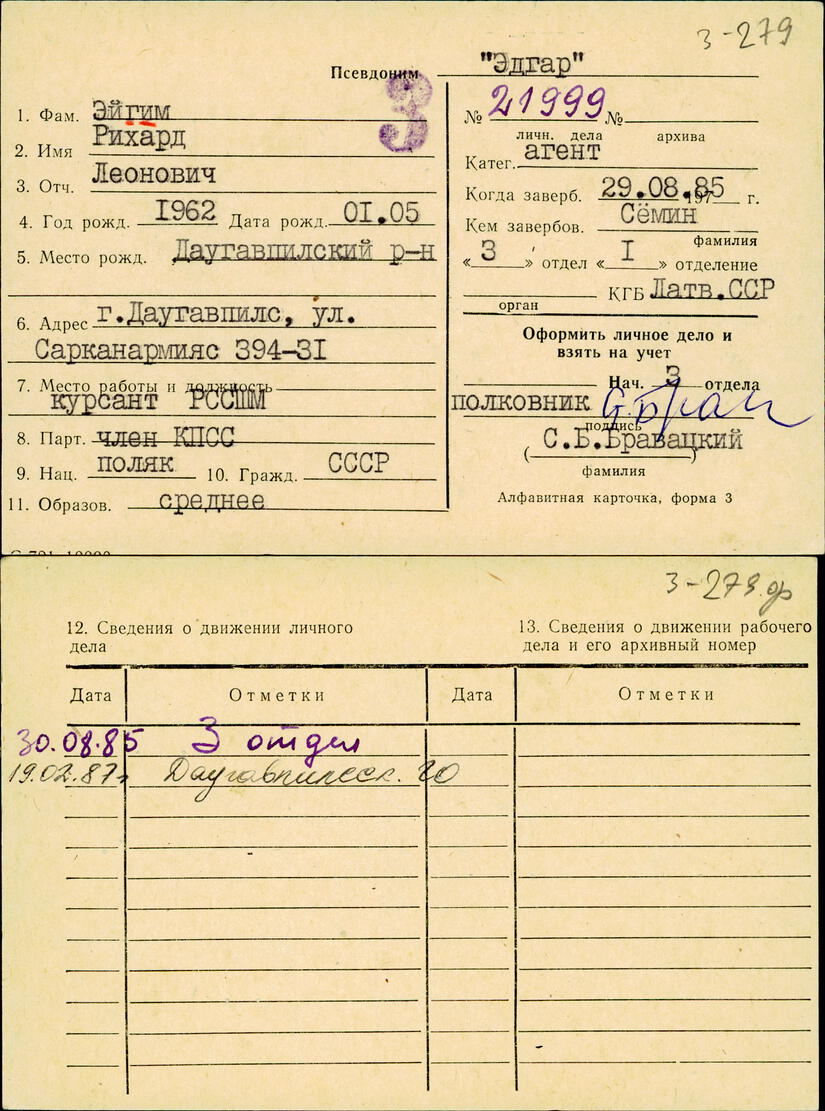 3-279
Псевдоним "Эдгар"
3
1. Фам. Эйгим
2. Имя Рихард
3. Отч. Леонович
4. Год рожд. 1962 Дата рожд. 01.05
5. Место рожд. Даугавпилский р-н
6. Адрес г.Даугавпилс, ул.
Сарканармияс 394-31
7. Место работы и должность
курсант РССШМ
8. Парт. член КПСС
9. Нац. поляк 10. Гражд. СССР
11. Образов. среднее
№ 21999 №
личн. дела архива
Катег. агент
Когда заверб. 29.08.85 197 г.
Кем завербов. Сёмин
фамилия
«3» отдел «I» отделение
КГБ Латв.ССР
орган
Оформить личное дело и
взять на учет
Нач. 3 отдела
полковник
подпись
(С.Б.Бравацкий)
фамилия
Алфавитная карточка, форма 3
3-279
12. Сведения о движении личного
дела
13. Сведения о движении рабочего
дела и его архивный номер
Дата Отметки Дата Отметки
30.08.85 3 отдел
19.02.87г Даугавпилсск. ГО